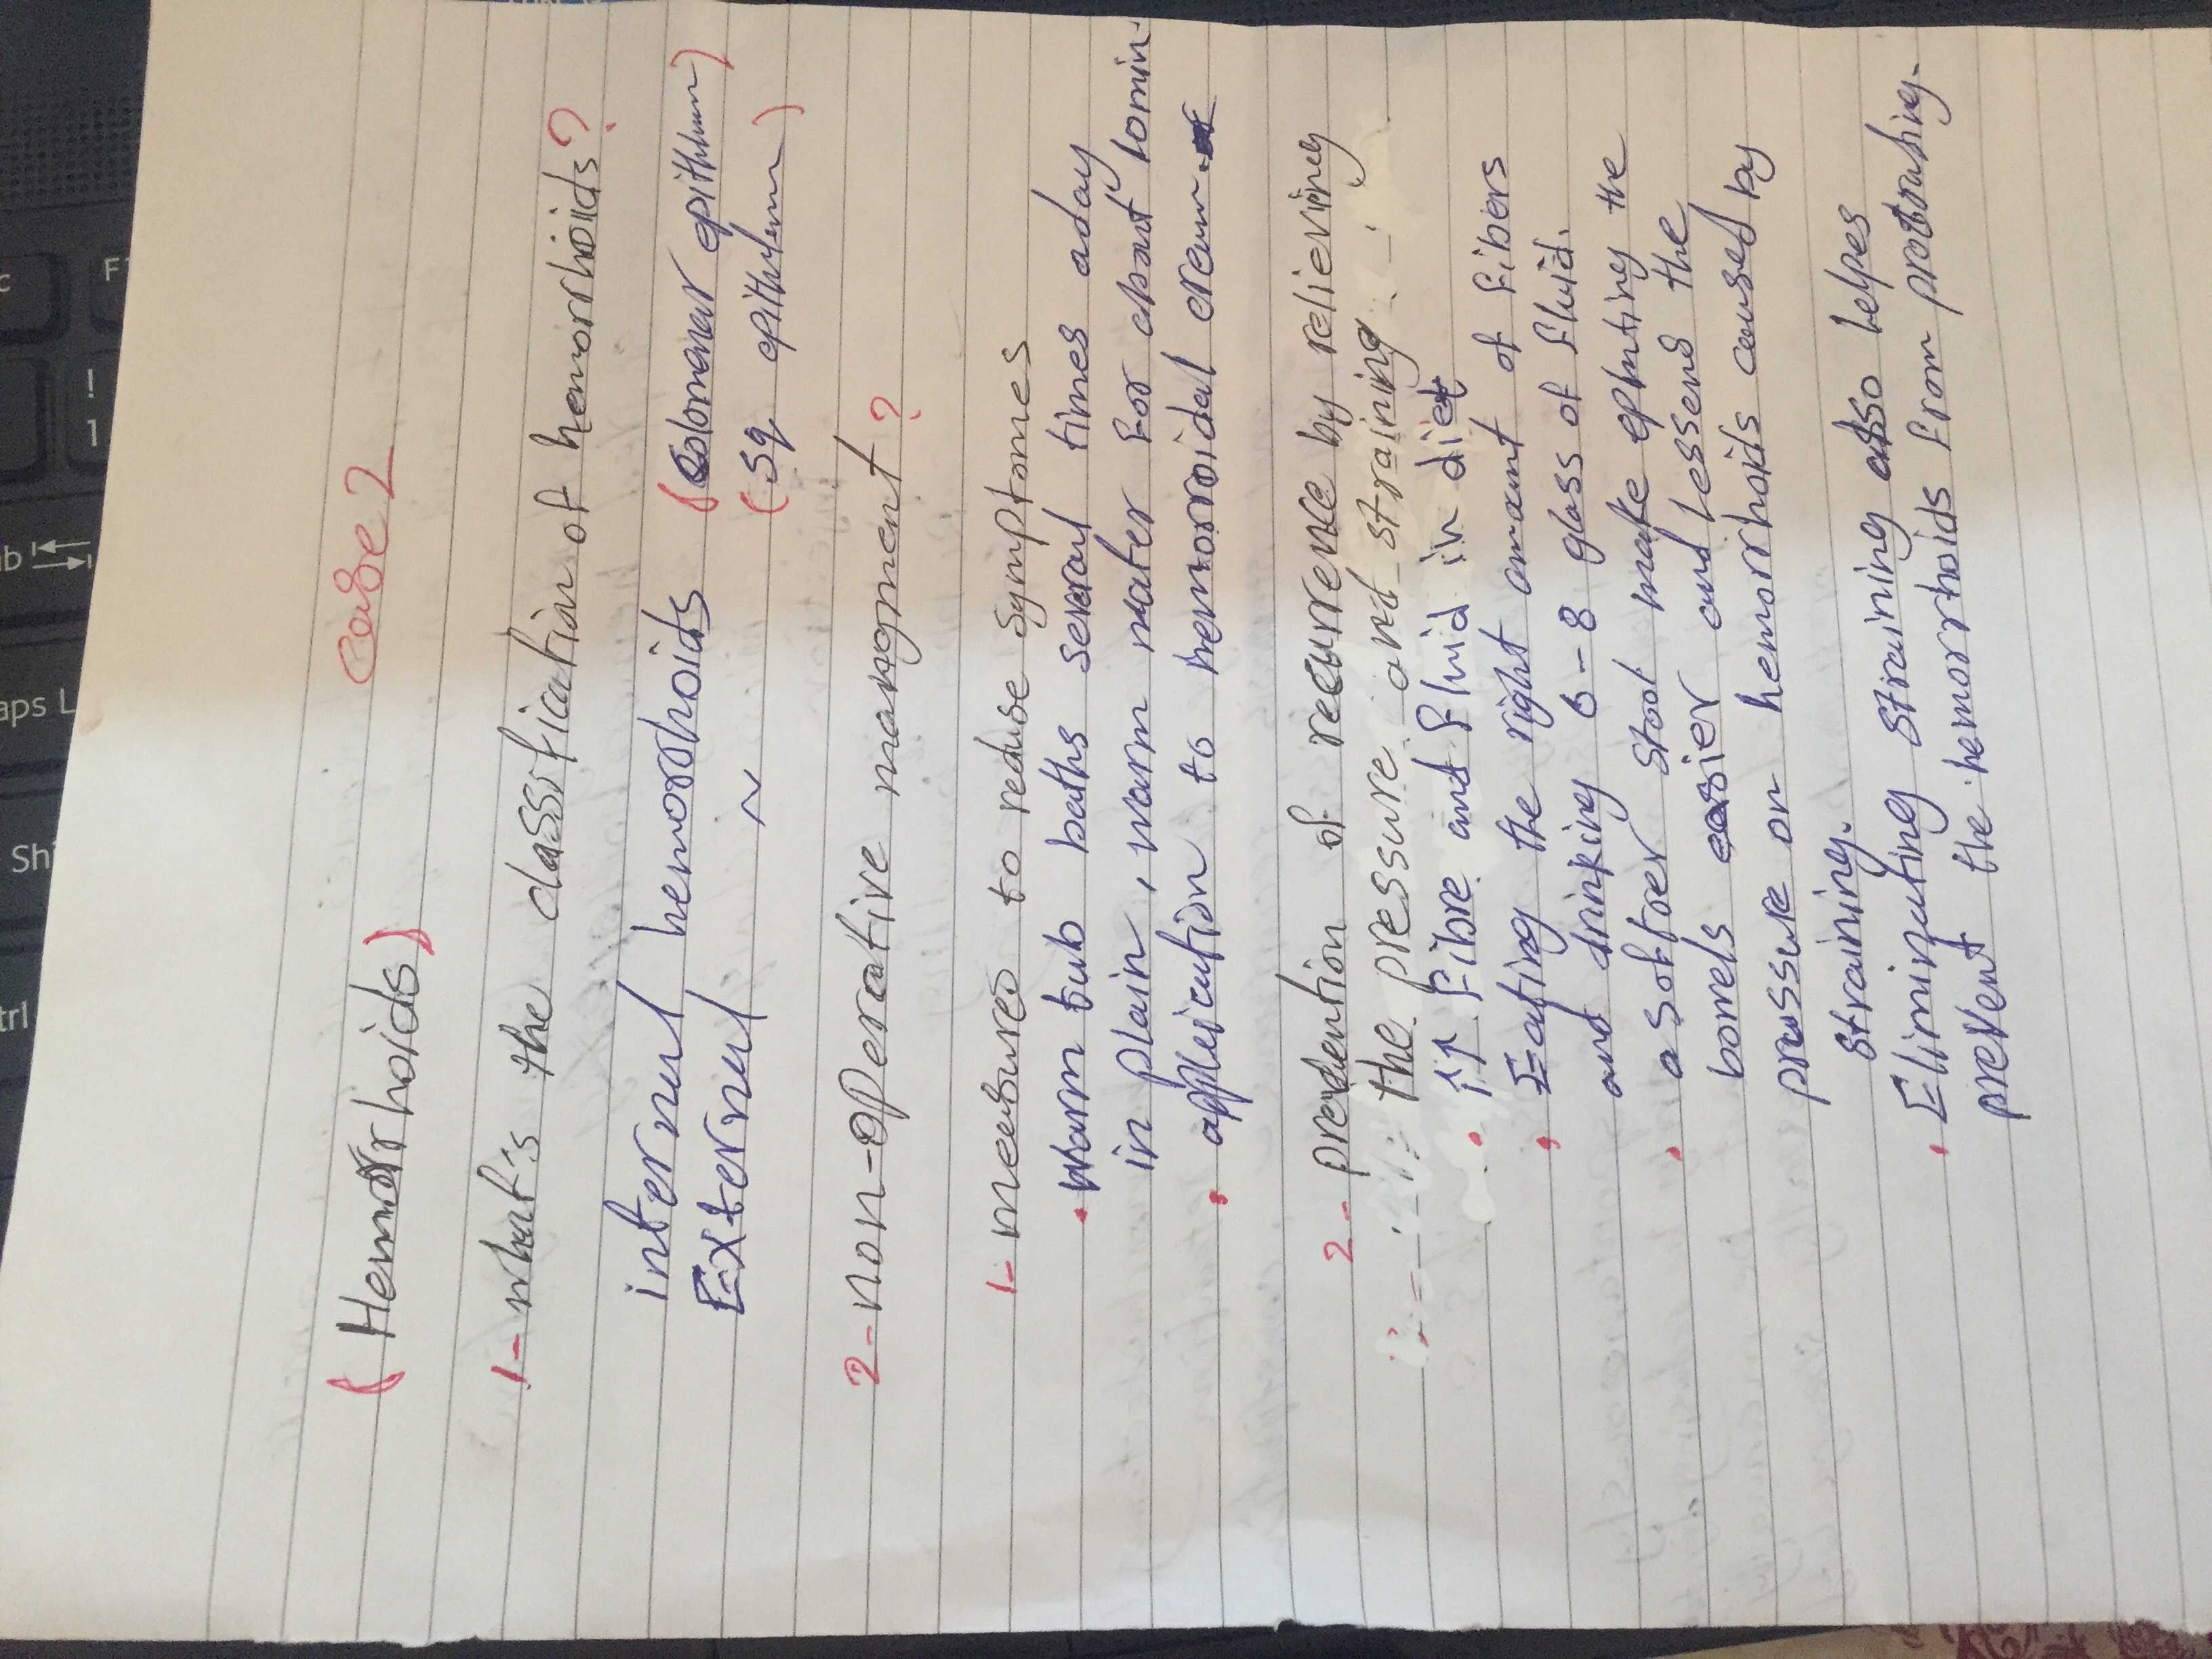 case 2
( Hemorrhoids )
1- what's the classification of hemorrhoids?
internul hemorrhoids (colomener epithlium)
Externul ~ (sq epithylium)
2- non-operative manegment?
1- meusures to reduse symptomes
. warm tub baths several times aday
in plain, warm water for about 10 min.
. applicution to hemorroidal cream.
2- prevention of recurrence by relieviny
the pressure and straining
. ↑↑ Fibre and fluid in diet
. Eating the right amount of fibers
and drinking 6-8 glass of fluid.
. a softoer stool make ephuting the
bowels easier and lessens the
pressure on hemorrhoids caused by
straining.
. Eliminating straining also helpes
prevent the hemorrhoids from protruding.
c
F
!
1
ab
aps L
Shi
trl